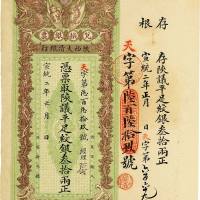 存根
存陝議平足紋銀叁拾兩正
宣統二年正月 日
天字第陸百陸拾玖號
天字第
兌換銀票
陝西大清銀行
天字第陸百陸拾玖號
憑票取陝議平足紋銀叁拾兩正
宣統二年 月 日